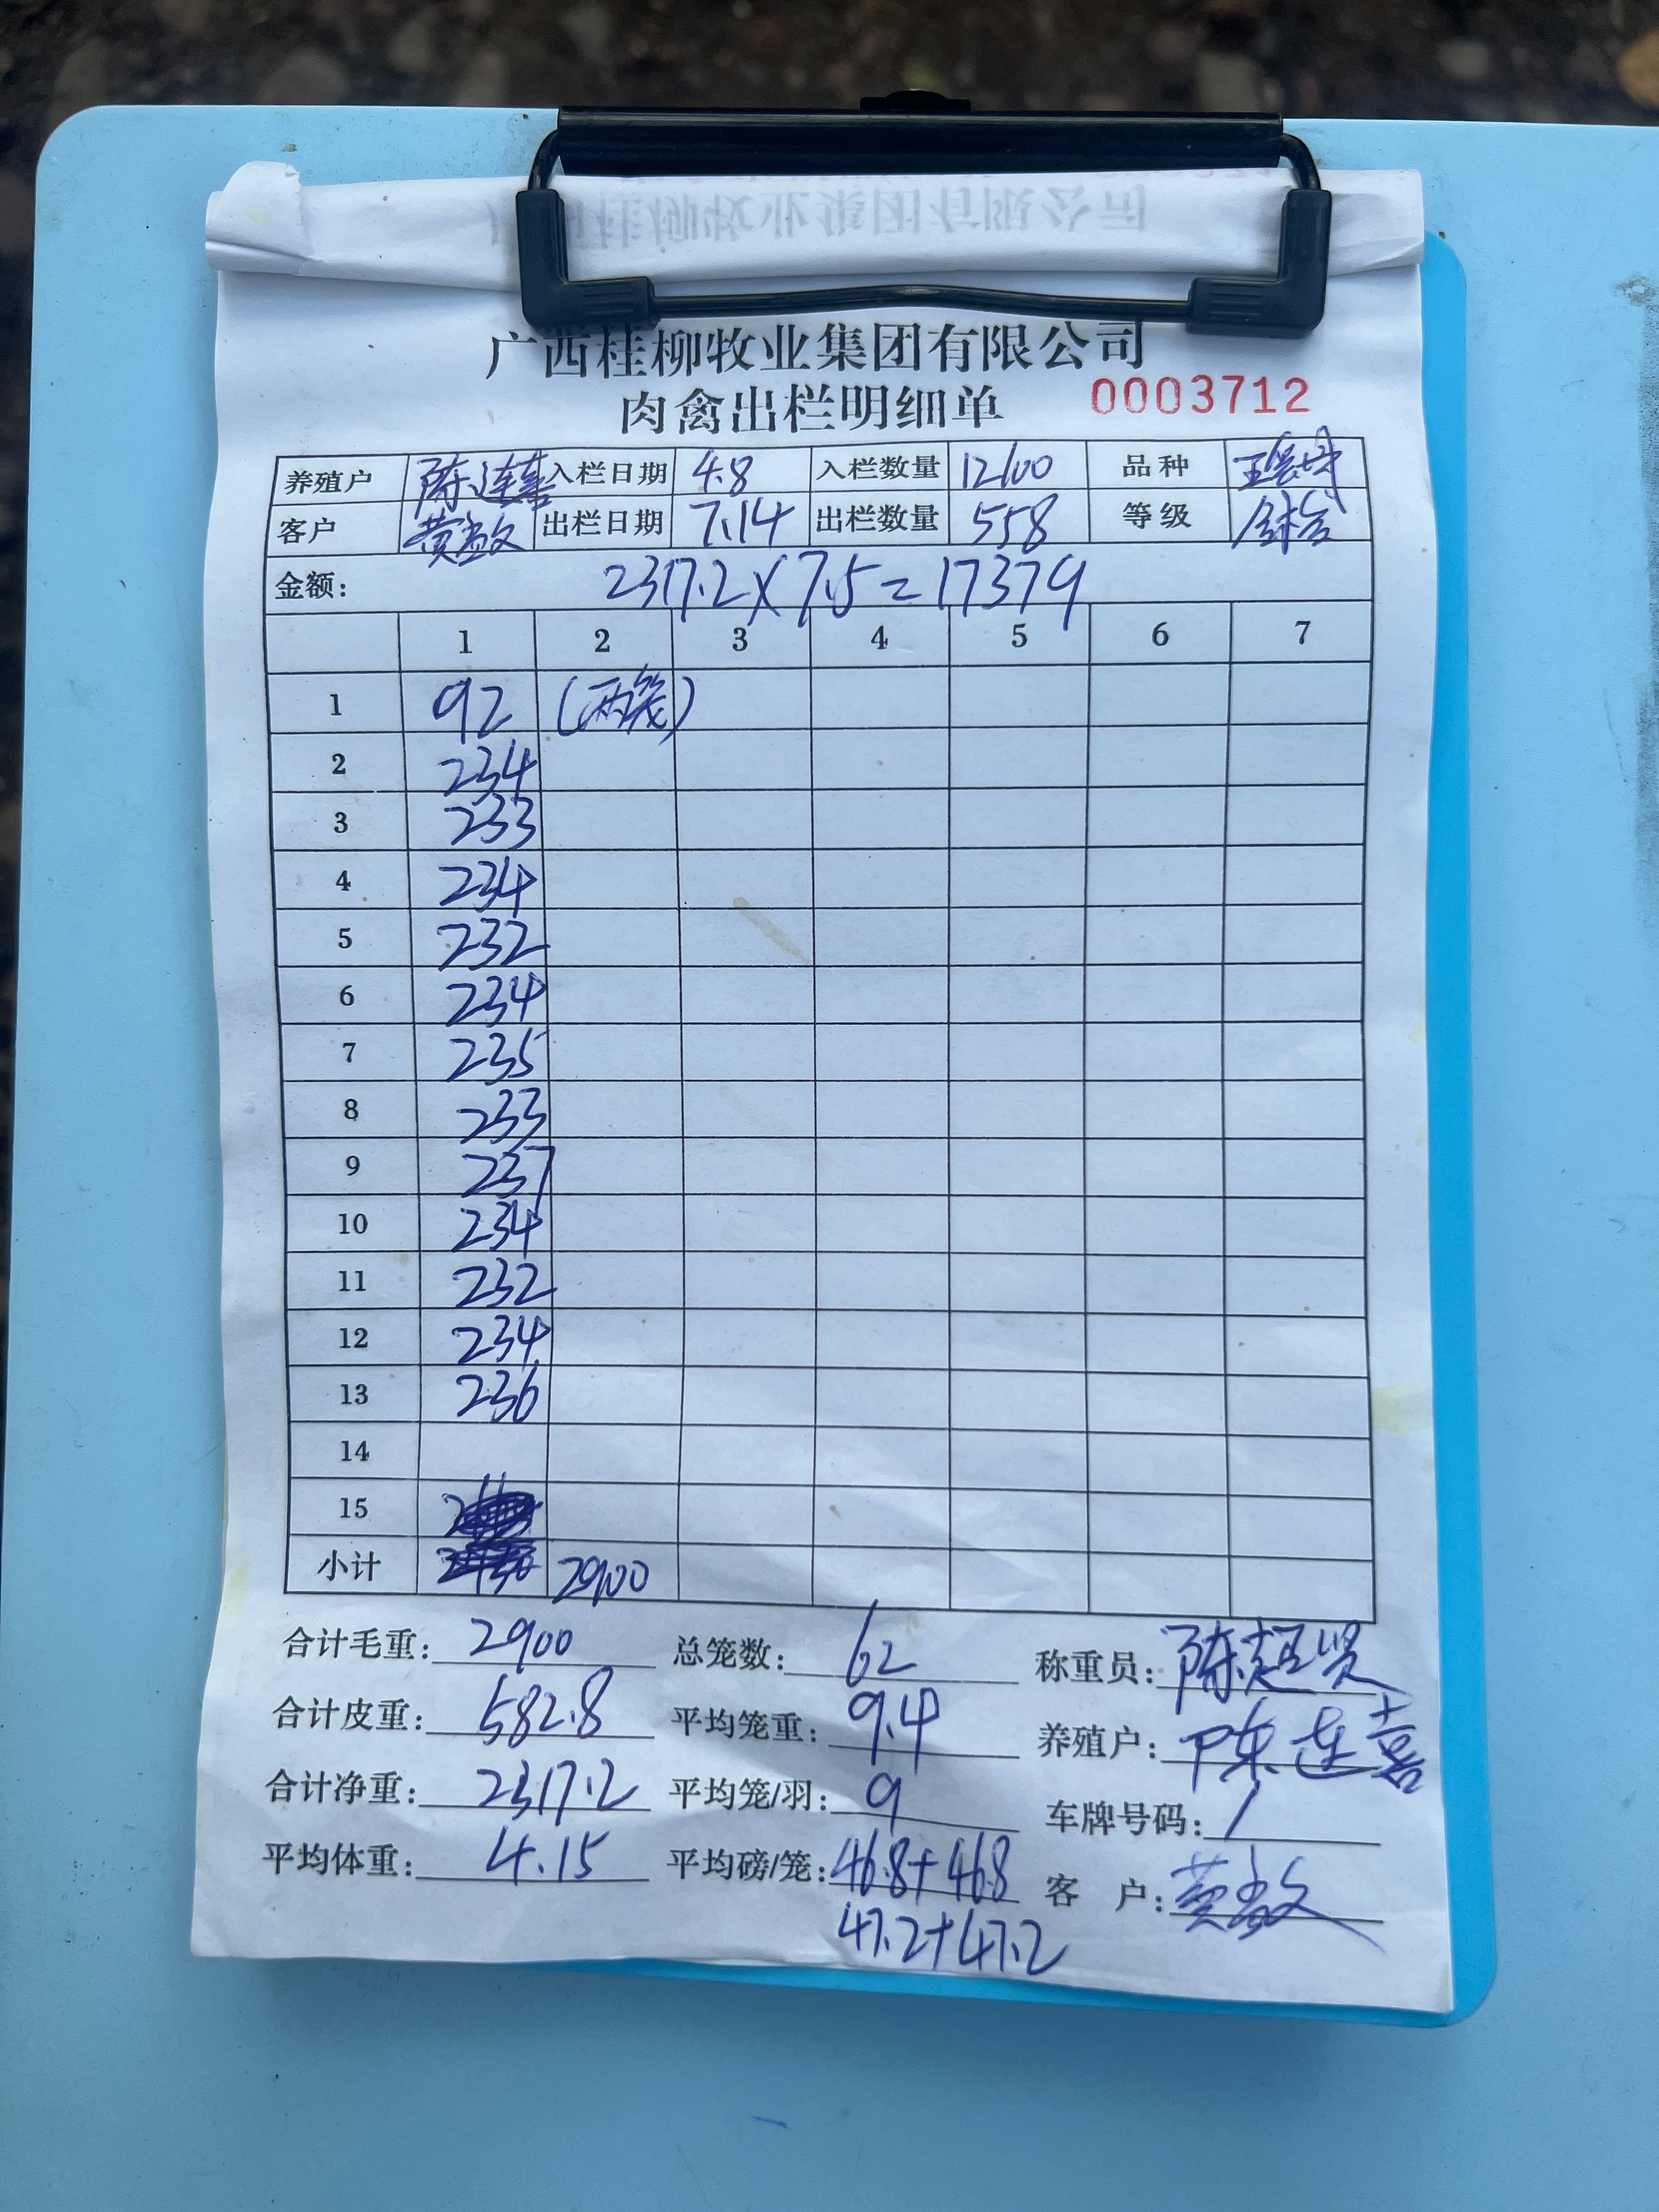 广西桂柳牧业集团有限公司
肉禽出栏明细单 0003712
养殖户 陈连喜 入栏日期 4.8 入栏数量 12100 品种
客户 黄敏 出栏日期 7.14 出栏数量 558 等级
金额: 2317.2×7.5=17379
1 2 3 4 5 6 7
1 92 (两笼)
2 234
3 233
4 234
5 232
6 234
7 235
8 233
9 237
10 234
11 232
12 234
13 236
14
15
小计 2900
合计毛重: 2900 总笼数: 62 称重员: 陈超贤
合计皮重: 582.8 平均笼重: 9.4 养殖户: 陈连喜
合计净重: 2317.2 平均笼/羽: 9 车牌号码: /
平均体重: 4.15 平均磅/笼: 46.8+46.8 客 户: 黄敏
47.2+47.2